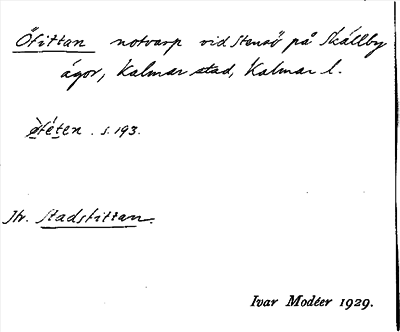 Ötittan notvarp vid Stensö på Skällby
ägor, Kalmar stad, Kalmar l.
ö̀téten. s. 193.
Jfr. Stadstittan.
Ivar Modéer 1929.